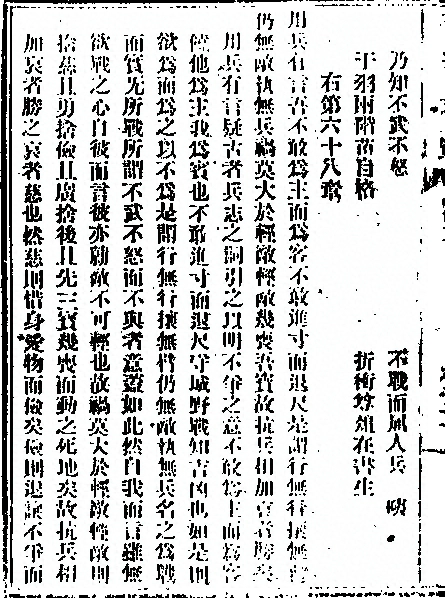 乃知不武不怒　不戰而屈人兵
干羽兩階苗自格　折衝尊俎在書生
右第六十八章
用兵有言吾不敢為主而為客不敢進寸而退尺是謂行無行攘無臂
仍無敵執無兵禍莫大於輕敵輕敵幾喪吾寶故抗兵相加哀者勝矣
用兵有言疑古者兵志之詞引之以明不爭之意不敢為主而為客
俟他為主我為賓也不敢進寸而退尺守城野戰知吉凶也如是則
欲為而為之以不為是謂行無行攘無臂仍無敵執無兵名之為戰
而實无所戰所謂不武不怒而不與者意蓋如此然自我而言雖無
欲戰之心自彼而言彼亦勍敵不可輕也故禍莫大於輕敵輕敵則
捨慈且勇捨儉且廣捨後且先三寶幾喪而動之死地矣故抗兵相
加哀者勝之哀者慈也然慈則惜身愛物而儉矣儉則退讓不爭而